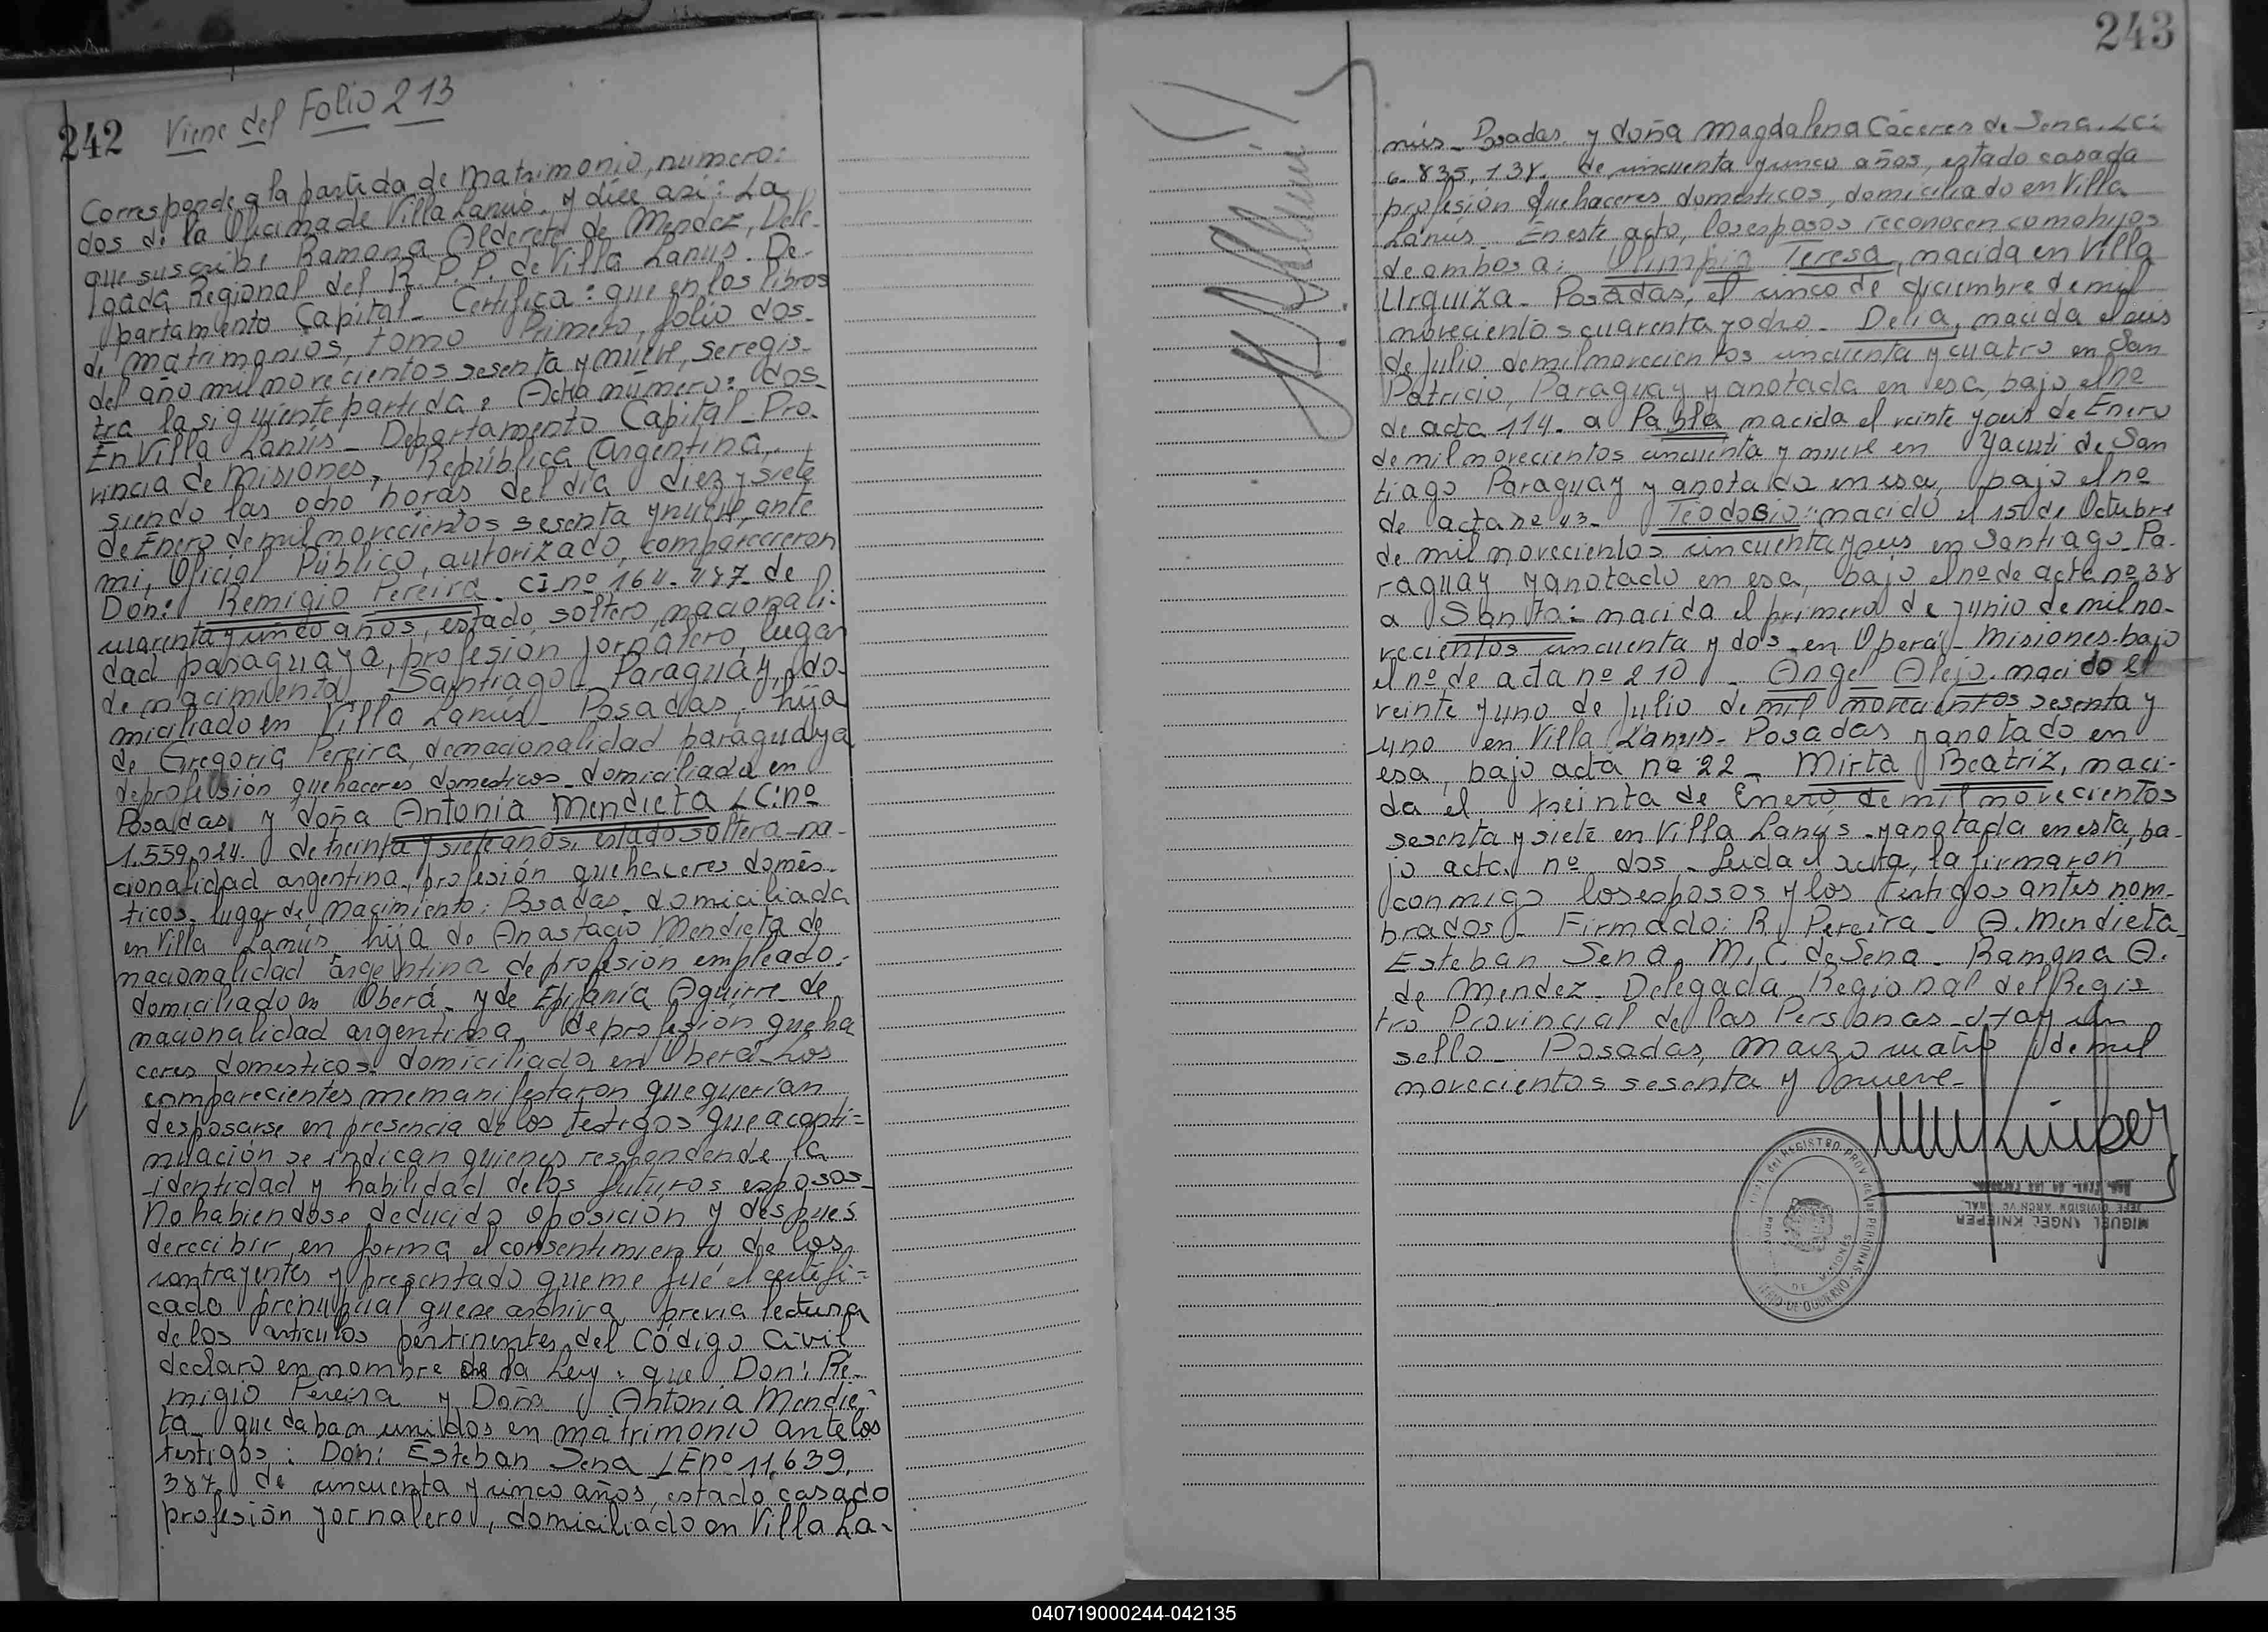 242 Viene del Folio 213
Corresponde a la partida de matrimonio, numero:
dos de la Oficina de Villa Lanús. y dice asi: La
que suscribe Ramona Alderete de Mendez, Dele-
gada Regional del R. P. P. de Villa Lanus. De-
partamento Capital. Certifica: que en los libros
de matrimonios, tomo Primero, folio dos-
del año mil novecientos sesenta y nueve, se regis-
tra la siguiente partida. Acta número: dos-
En Villa Lanús - Departamento Capital - Pro-
vincia de Misiones, República Argentina,
siendo las ocho horas del día diez y siete
de Enero de mil novecientos sesenta y nueve, ante
mi, Oficial Público, autorizado, comparecieron
Don: Remigio Pereira. CI nº 164.487- de
cuarenta y cinco años, estado soltero, nacionali-
dad paraguaya, profesión jornalero, lugar
de nacimiento Santiago - Paraguay, do-
miciliado en Villa Lanús - Posadas, hijo
de Gregoria Pereira, de nacionalidad paraguaya
de profesión quehaceres domesticos - domiciliada en
Posadas y doña Antonia Mendieta LC: nº
1.559.024. de treinta y siete años, estado soltera - na-
cionalidad argentina, profesión quehaceres domés-
ticos. lugar de nacimiento: Posadas - domiciliada
en Villa Lanús hija de Anastacio Mendieta de
nacionalidad argentina de profesión empleado.-
domiciliado en Oberá - y de Epifanía Aguirre - de
nacionalidad argentina - de profesión queha
ceres domesticos - domiciliada en Oberá - Los
comparecientes me manifestaron que querían
desposarse en presencia de los testigos que a conti=
nuación se indican quienes responden de la
identidad y habilidad de los futuros esposos -
No habiendose deducido oposición y despues
de recibir en forma el consentimiento de los
contrayentes y presentado que me fué el certifi=
cado prenupcial que se archiva, previa lectura
de los articulos pertinentes del Código Civil
declaro en nombre de la Ley: que Don: Re-
migio Pereira y Doña Antonia Mendie-
ta - quedaban unidos en matrimonio ante los
testigos: Don: Esteban Sena LE nº 11.639.
387. de cincuenta y cinco años, estado casado
profesión jornalero, domiciliado en Villa La-
243
nús - Posadas. y doña Magdalena Cáceres de Sena. LC:
6.835.138. de cincuenta y cinco años, estado casada
profesión quehaceres domésticos, domiciliado en Villa
Lanús - En este acto, los esposos reconocen como hijos
de ambos a: Olimpia Teresa, nacida en Villa
Urquiza - Posadas, el cinco de diciembre de mil
novecientos cuarenta y ocho - Delia, nacida el seis
de Julio de mil novecientos cincuenta y cuatro en San
Patricio, Paraguay y anotada en esa, bajo el nº
de acta 114 - a Pabla nacida el veinte y seis de Enero
de mil novecientos cincuenta y nueve en Yacuti de San
tiago Paraguay y anotado en esa, bajo el nº
de acta nº 43 - Teodosio: nacido el 15 de Octubre
de mil novecientos cincuenta y seis en Santiago - Pa-
raguay y anotado en esa, bajo el nº de acta nº 38
a Santa: nacida el primero de Junio de mil no-
vecientos cincuenta y dos - en Oberá - Misiones - bajo
el nº de acta nº 210 - Angel Alejo. nacido el
veinte y uno de Julio de mil novecientos sesenta y
uno en Villa Lanus - Posadas y anotado en
esa, bajo acta nº 22 - Mirta Beatríz, naci-
da el treinta de Enero de mil novecientos
sesenta y siete en Villa Lanús - y anotada en esta, ba-
jo acta nº dos - Leida el acta, la firmaron
conmigo los esposos y los testigos antes nom-
brados - Firmado: R. Pereira - A. Mendieta -
Esteban Sena. M. C. de Sena - Ramona A.
de Mendez - Delegada Regional del Regis
tro Provincial de las Personas - Hay un
sello - Posadas, Marzo cuatro de mil
novecientos sesenta y nueve -
del REGISTRO PROV. de las PERSONAS
DE MISIONES
MIGUEL ANGEL KNIEPER
JEFE DIVISION ARCHIVO GRAL.
Reg. Prov. de las Personas
040719000244-042135